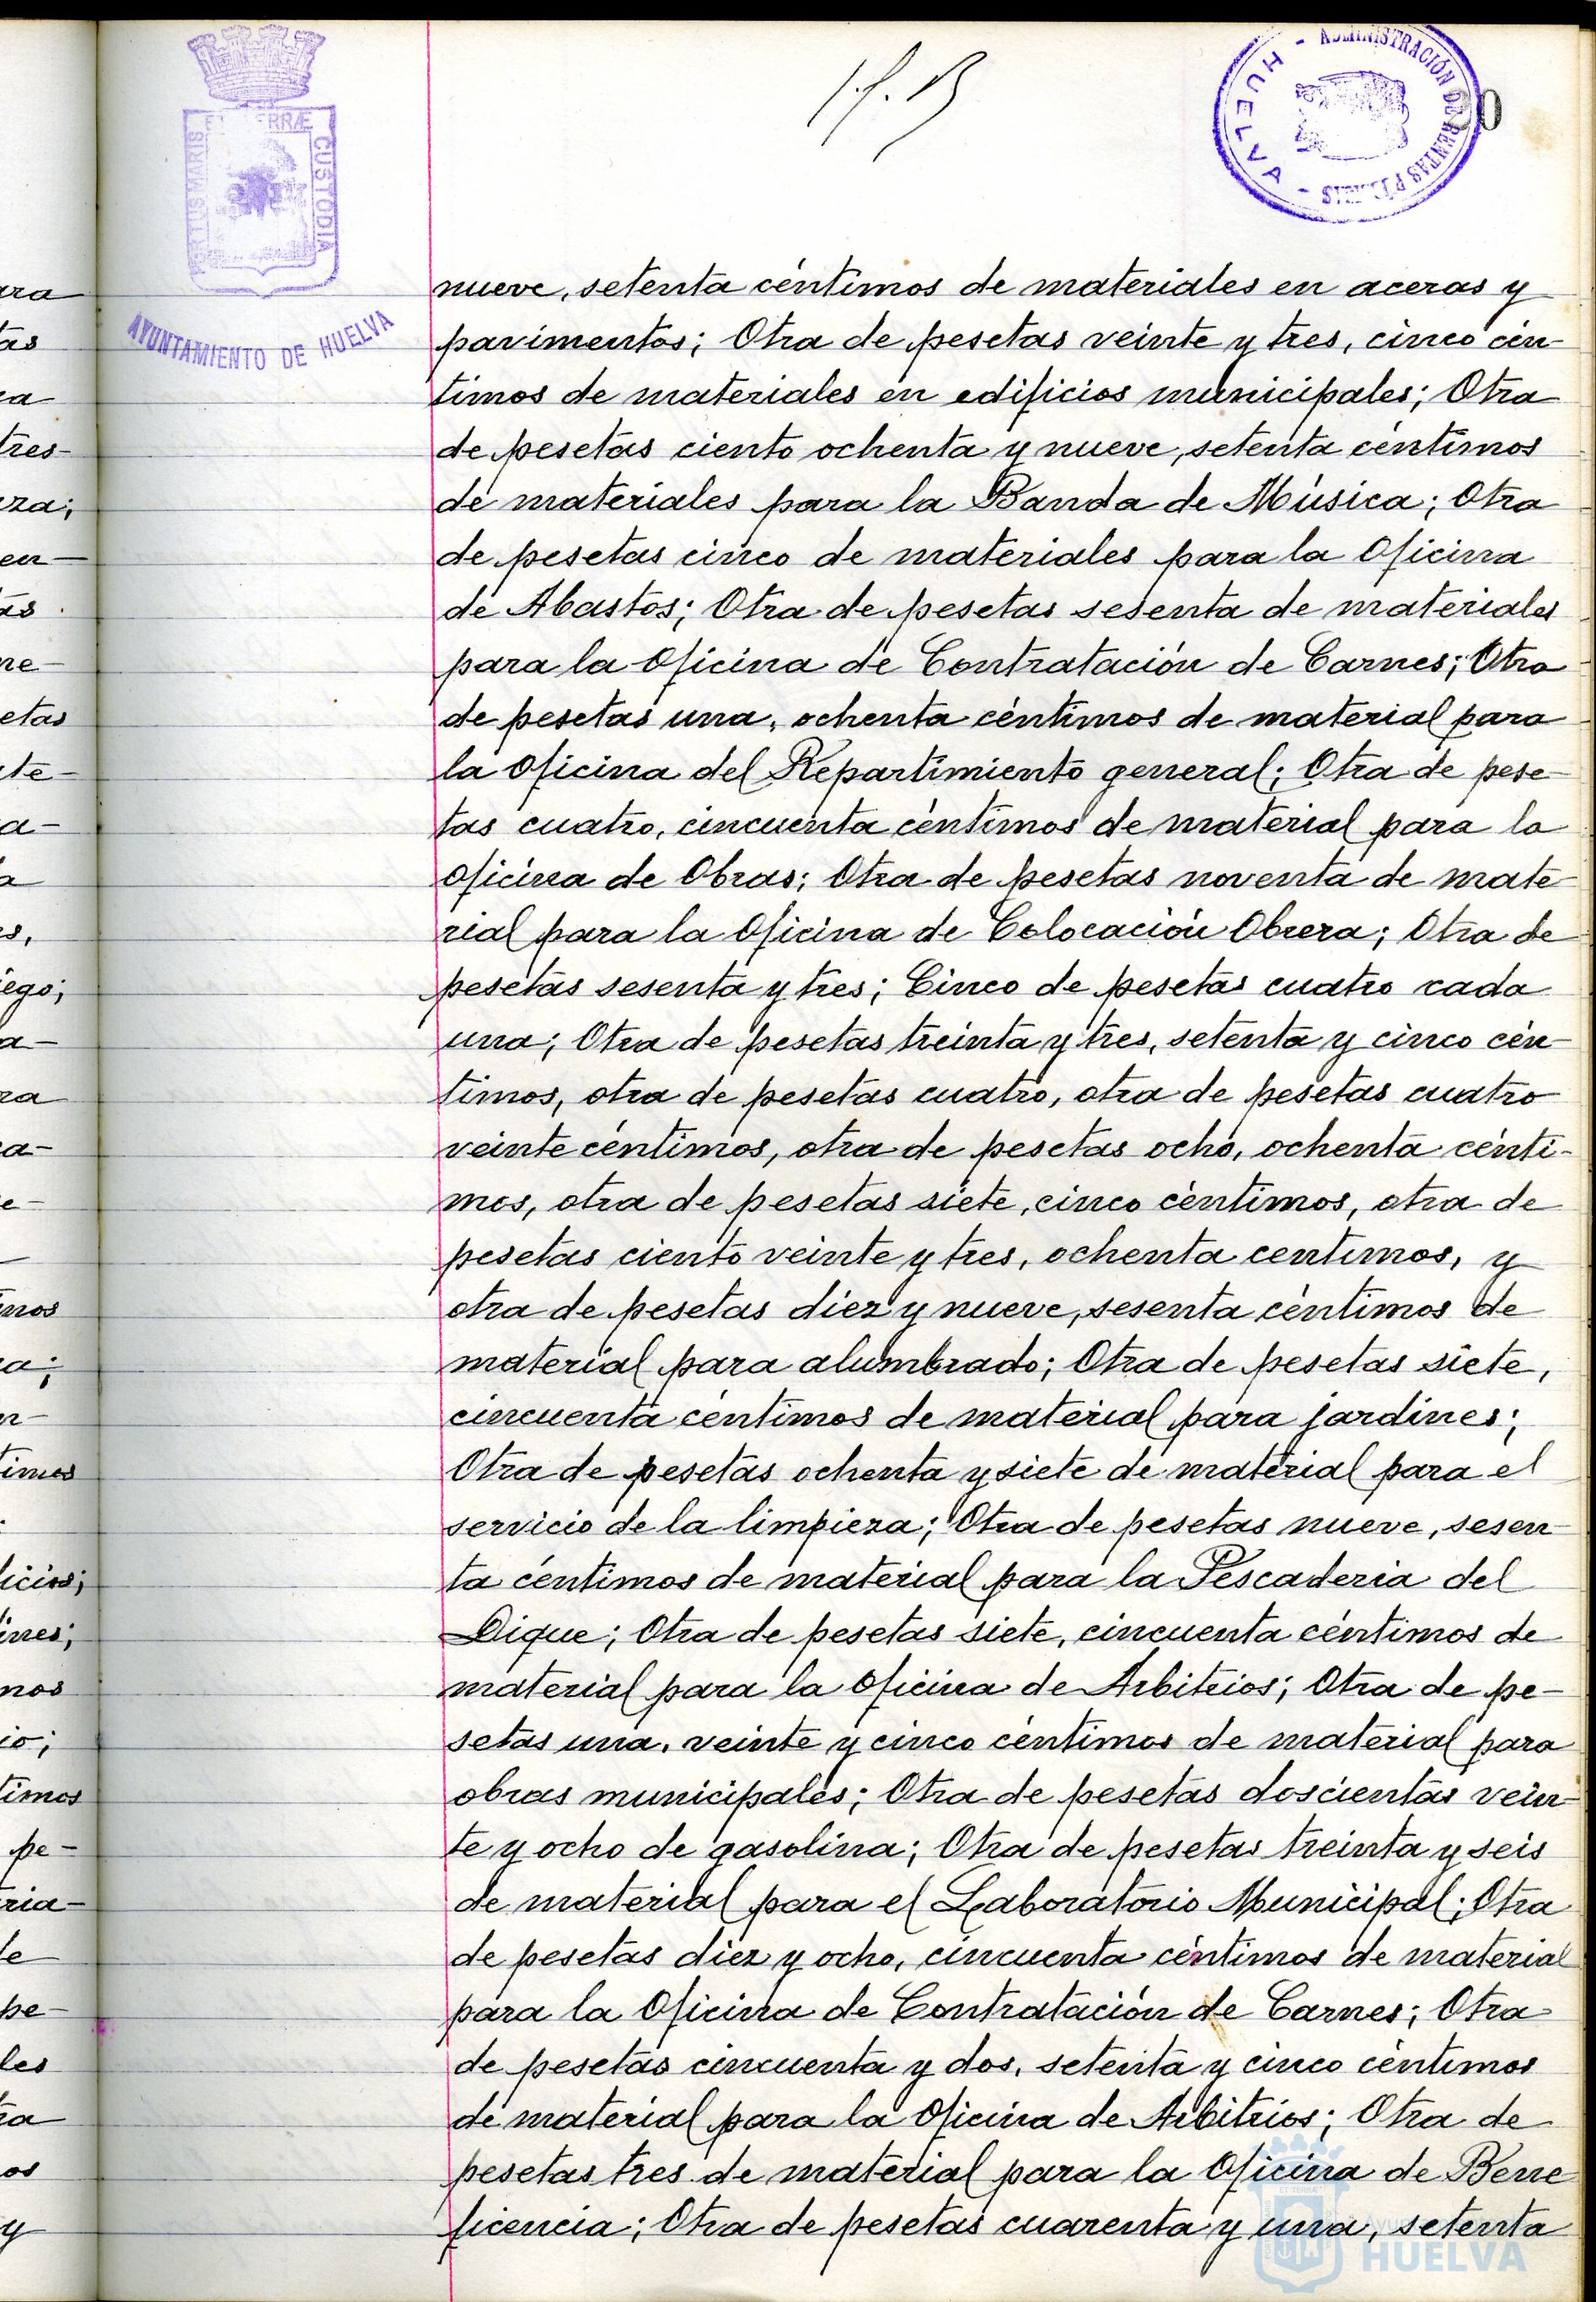 AYUNTAMIENTO DE HUELVA
PORTUS MARIS ET TERRÆ CUSTODIA
ADMINISTRACIÓN DE RENTAS PÚBLICAS
- HUELVA -
nueve, setenta céntimos de materiales en aceras y
pavimentos; Otra de pesetas veinte y tres, cinco cén-
timos de materiales en edificios municipales; Otra
de pesetas ciento ochenta y nueve, setenta céntimos
de materiales para la Banda de Música; Otra
de pesetas cinco de materiales para la Oficina
de Abastos; Otra de pesetas sesenta de materiales
para la Oficina de Contratación de Carnes; Otra
de pesetas una, ochenta céntimos de material para
la Oficina del Repartimiento general; Otra de pese-
tas cuatro, cincuenta céntimos de material para la
oficina de Obras; Otra de pesetas noventa de mate-
rial para la Oficina de Colocación Obrera; Otra de
pesetas sesenta y tres; Cinco de pesetas cuatro cada
una; Otra de pesetas treinta y tres, setenta y cinco cén-
timos, otra de pesetas cuatro, otra de pesetas cuatro
veinte céntimos, otra de pesetas ocho, ochenta cénti-
mos, otra de pesetas siete, cinco céntimos, otra de
pesetas ciento veinte y tres, ochenta centimos, y
otra de pesetas diez y nueve, sesenta céntimos de
material para alumbrado; Otra de pesetas siete,
cincuenta céntimos de material para jardines;
Otra de pesetas ochenta y siete de material para el
servicio de la limpieza; Otra de pesetas nueve, sesen-
ta céntimos de material para la Pescaderia del
Dique; Otra de pesetas siete, cincuenta céntimos de
material para la Oficina de Arbitrios; Otra de pe-
setas una, veinte y cinco céntimos de material para
obras municipales; Otra de pesetas doscientas vein-
te y ocho de gasolina; Otra de pesetas treinta y seis
de material para el Laboratorio Municipal; Otra
de pesetas diez y ocho, cincuenta céntimos de material
para la Oficina de Contratación de Carnes; Otra
de pesetas cincuenta y dos, setenta y cinco céntimos
de material para la Oficina de Arbitrios; Otra de
pesetas tres de material para la Oficina de Bene
ficencia; Otra de pesetas cuarenta y una, setenta
HUELVA